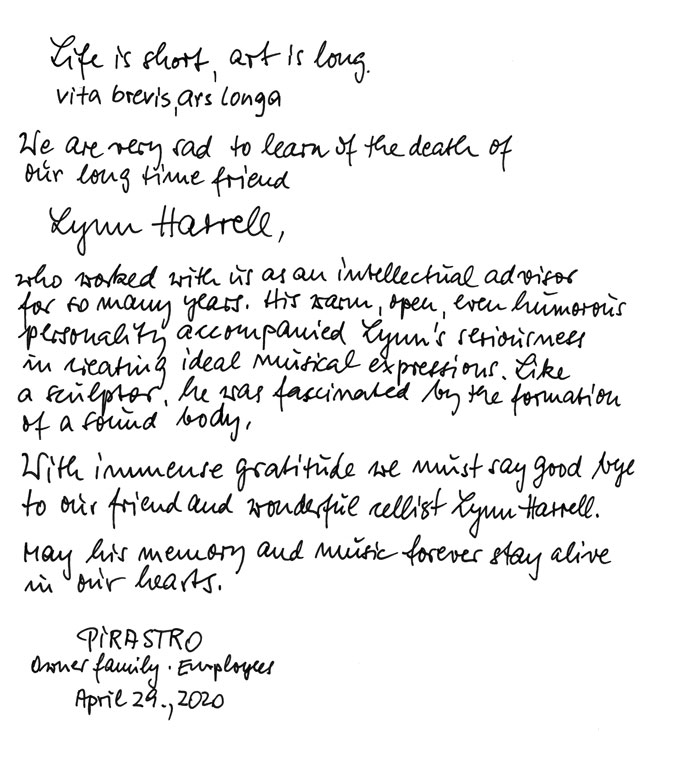 Life is short, art is long.
vita brevis, ars longa
We are very sad to learn of the death of
our long time friend
Lynn Harrell,
who worked with us as an intellectual advisor
for so many years. His warm, open, even humorous
personality accompanied Lynn's seriousness
in creating ideal musical expressions. Like
a sculptor, he was fascinated by the formation
of a sound body.
With immense gratitude we must say good bye
to our friend and wonderful cellist Lynn Harrell.
May his memory and music forever stay alive
in our hearts.
PIRASTRO
Owner family · Employees
April 29., 2020